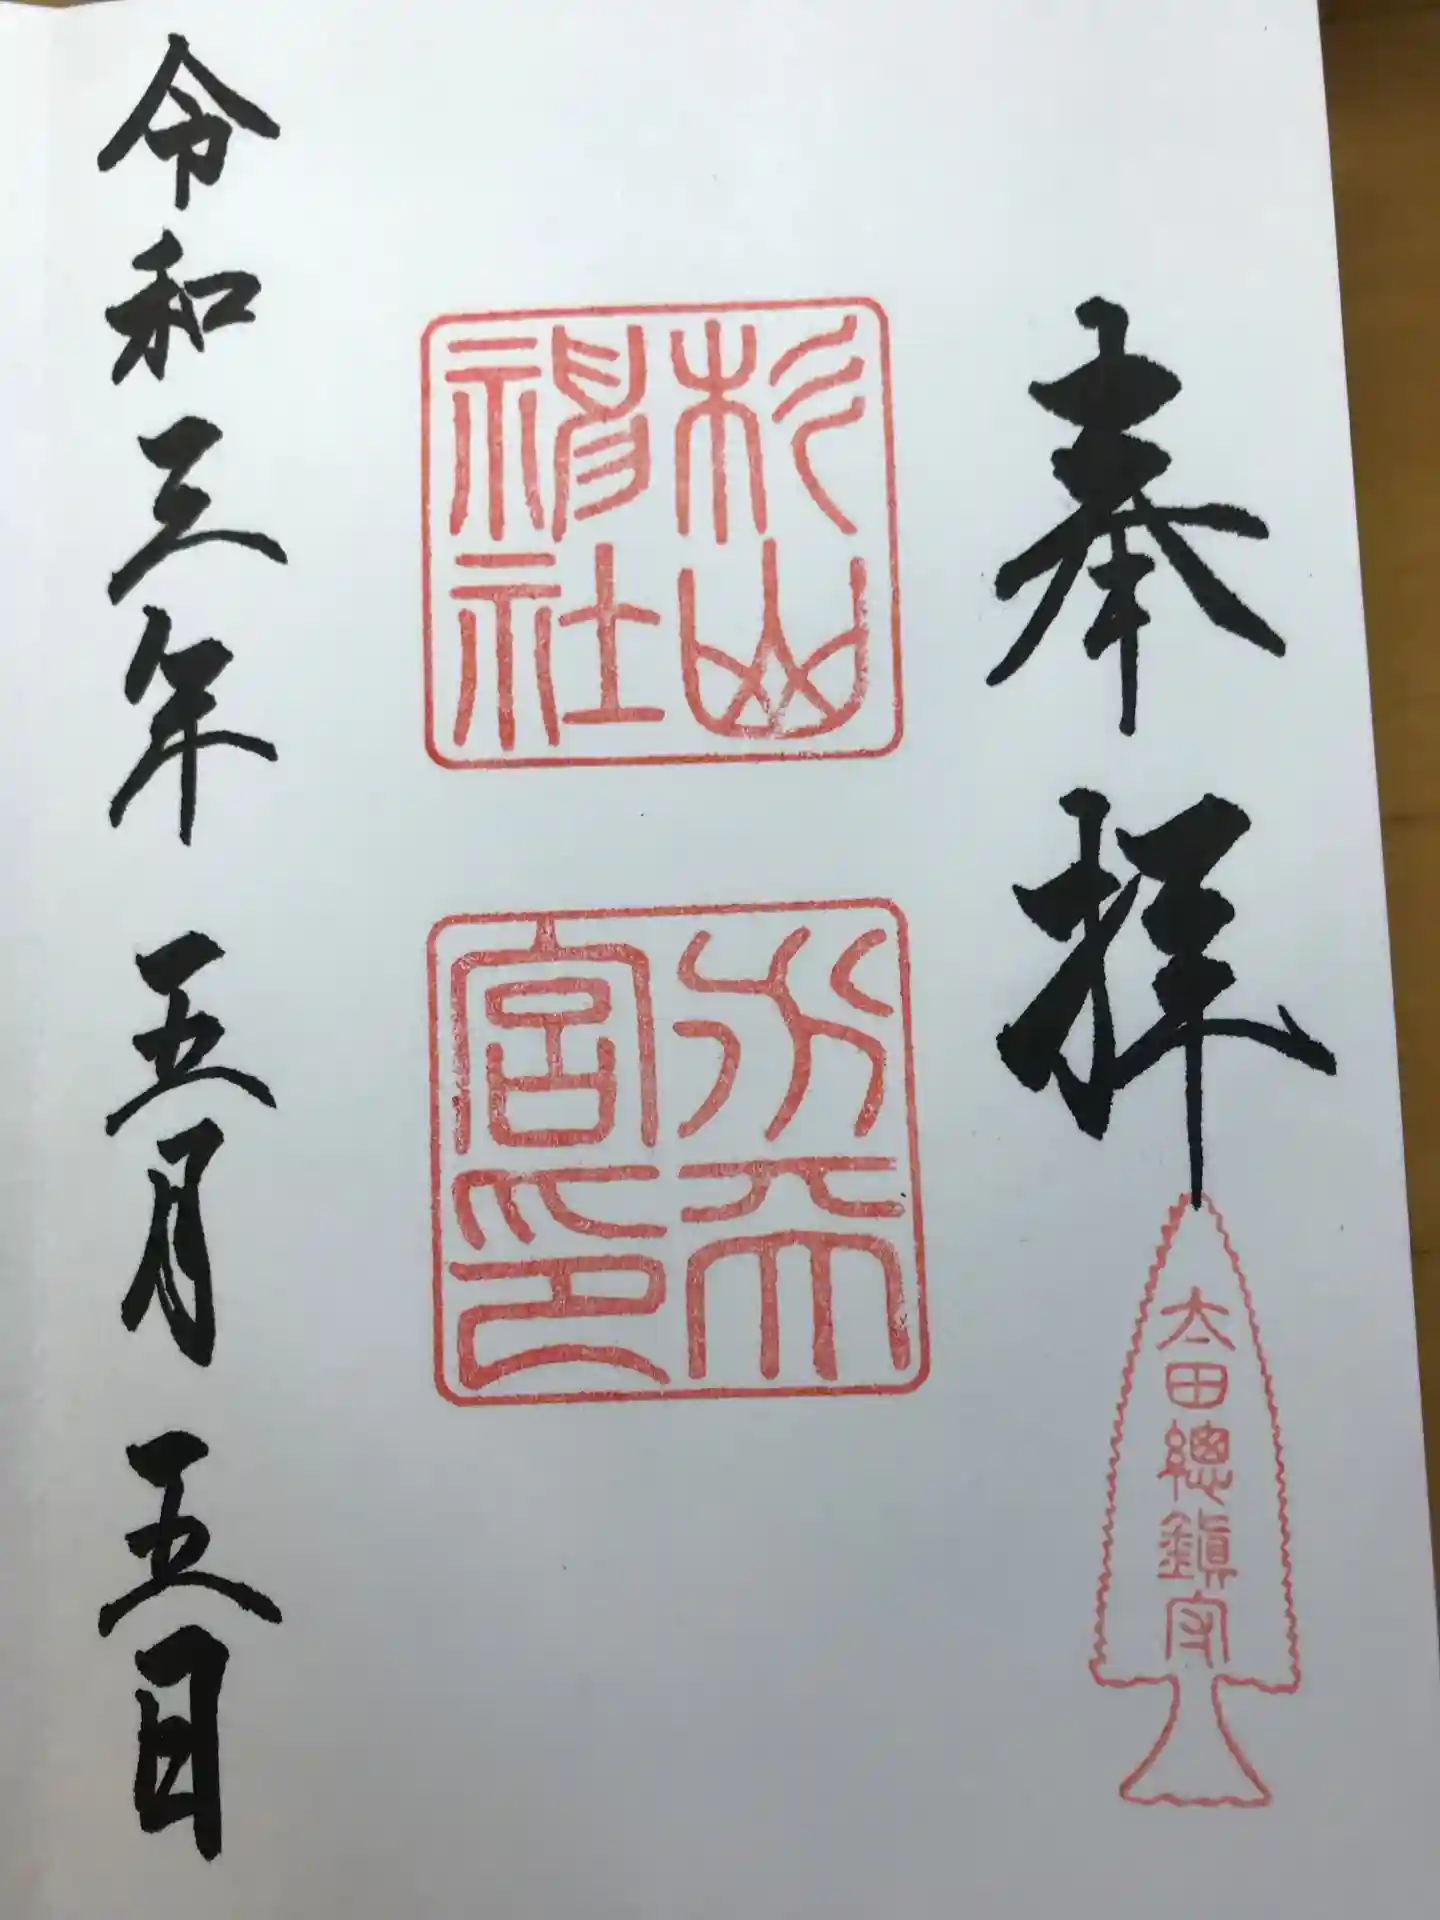 奉拝
太田總鎮守
杉山
神社
水天
宮印
令和三年五月五日